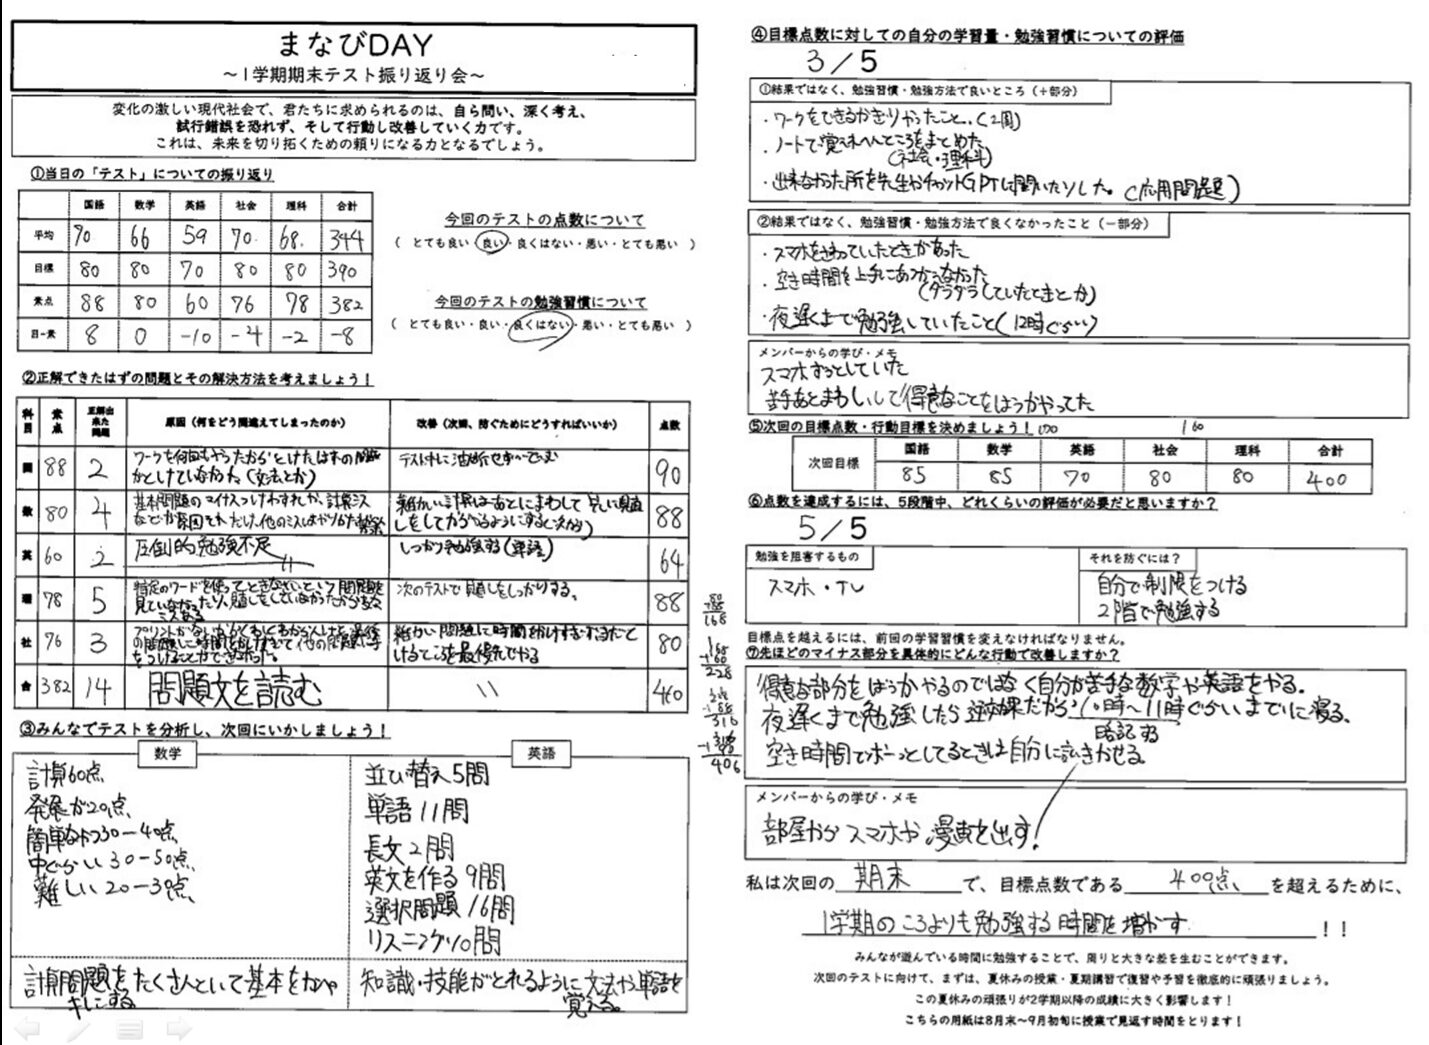 まなびDAY
～1学期期末テスト振り返り会～
変化の激しい現代社会で、君たちに求められるのは、自ら問い、深く考え、
試行錯誤を恐れず、そして行動し改善していく力です。
これは、未来を切り拓くための頼りになる力となるでしょう。
①当日の「テスト」についての振り返り
国語 数学 英語 社会 理科 合計
平均 70 66 59 70. 68. 344
目標 80 80 70 80 80 390
素点 88 80 60 76 78 382
目-素 8 0 -10 -4 -2 -8
今回のテストの点数について
( とても良い・良い・良くはない・悪い・とても悪い )
今回のテストの勉強習慣について
( とても良い・良い・良くはない・悪い・とても悪い )
②正解できたはずの問題とその解決方法を考えましょう！
科目 素点 正解出来た問題 原因（何をどう間違えてしまったのか） 改善（次回、防ぐためにどうすればいいか） 点数
国 88 2 ワークを何回もやったからとけたはずの問題
をしていなかった。(文法とか)
90
数 80 4 基本問題のマイナスつけわすれか、計算ミス
難かしい計算はあとにまわして
88
英 60 2 圧倒的勉強不足 しっかり勉強する(単語) 64
理 78 5 指定のワードを使ってときなさいという問題を
次のテストで見直しをしっかりする。 88
社 76 3
細かい問題に時間をかけすぎず
とけるところを最優先でやる
80
合 382 14 問題文を読む 〃 410
80
+88
168
168
316
406
③みんなでテストを分析し、次回にいかしましょう！
数学
計算60点
発展が20点、
簡単なやつ30-40点、
中ぐらい30-50点、
難しい20-30点、
計算問題をたくさんといて基本をかんぺ
キにする。
英語
並び替え5問
単語11問
長文2問
英文を作る9問
選択問題16問
リスニング10問
知識・技能がとれるように文法や単語を
覚える。
④目標点数に対しての自分の学習量・勉強習慣についての評価
3/5
①結果ではなく、勉強習慣・勉強方法で良いところ（＋部分）
・ワークをできるかぎりやったこと、(2周)
・ノートで覚えれへんところをまとめた
(社会・理科)
・出来なかった所を先生かチャットGPTに聞いたりした。(応用問題)
②結果ではなく、勉強習慣・勉強方法で良くなかったこと（－部分）
・スマホをさわっていたときがあった
・空き時間を上手にあつかえなかった
(ダラダラしていたときとか)
・夜遅くまで勉強していたこと(12時ぐらい)
メンバーからの学び・メモ
スマホずっとしていた
苦手あとまわしして得意なことをばっかやってた
⑤次回の目標点数・行動目標を決めましょう！
160
国語 数学 英語 社会 理科 合計
次回目標 85 85 70 80 80 400
⑥点数を達成するには、5段階中、どれくらいの評価が必要だと思いますか？
5/5
勉強を阻害するもの
スマホ・TV
それを防ぐには？
自分で制限をつける
2階で勉強する
目標点を越えるには、前回の学習習慣を変えなければなりません。
⑦先ほどのマイナス部分を具体的にどんな行動で改善しますか？
得意な部分をばっかやるのではなく自分が苦手な数学や英語をやる。
夜遅くまで勉強したら逆効果だから10時～11時ぐらいまでに寝る、
暗記する
空き時間でボーっとしてるときは自分に言いきかせる。
メンバーからの学び・メモ
部屋からスマホや漫画を出す！
私は次回の 期末 で、目標点数である 400点、 を超えるために、
1学期のころよりも勉強する時間を増やす ！！
みんなが遊んでいる時間に勉強することで、周りと大きな差を生むことができます。
次回のテストに向けて、まずは、夏休みの授業・夏期講習で復習や予習を徹底的に頑張りましょう。
この夏休みの頑張りが2学期以降の成績に大きく影響します！
こちらの用紙は8月末～9月初旬に授業で見返す時間をとります！